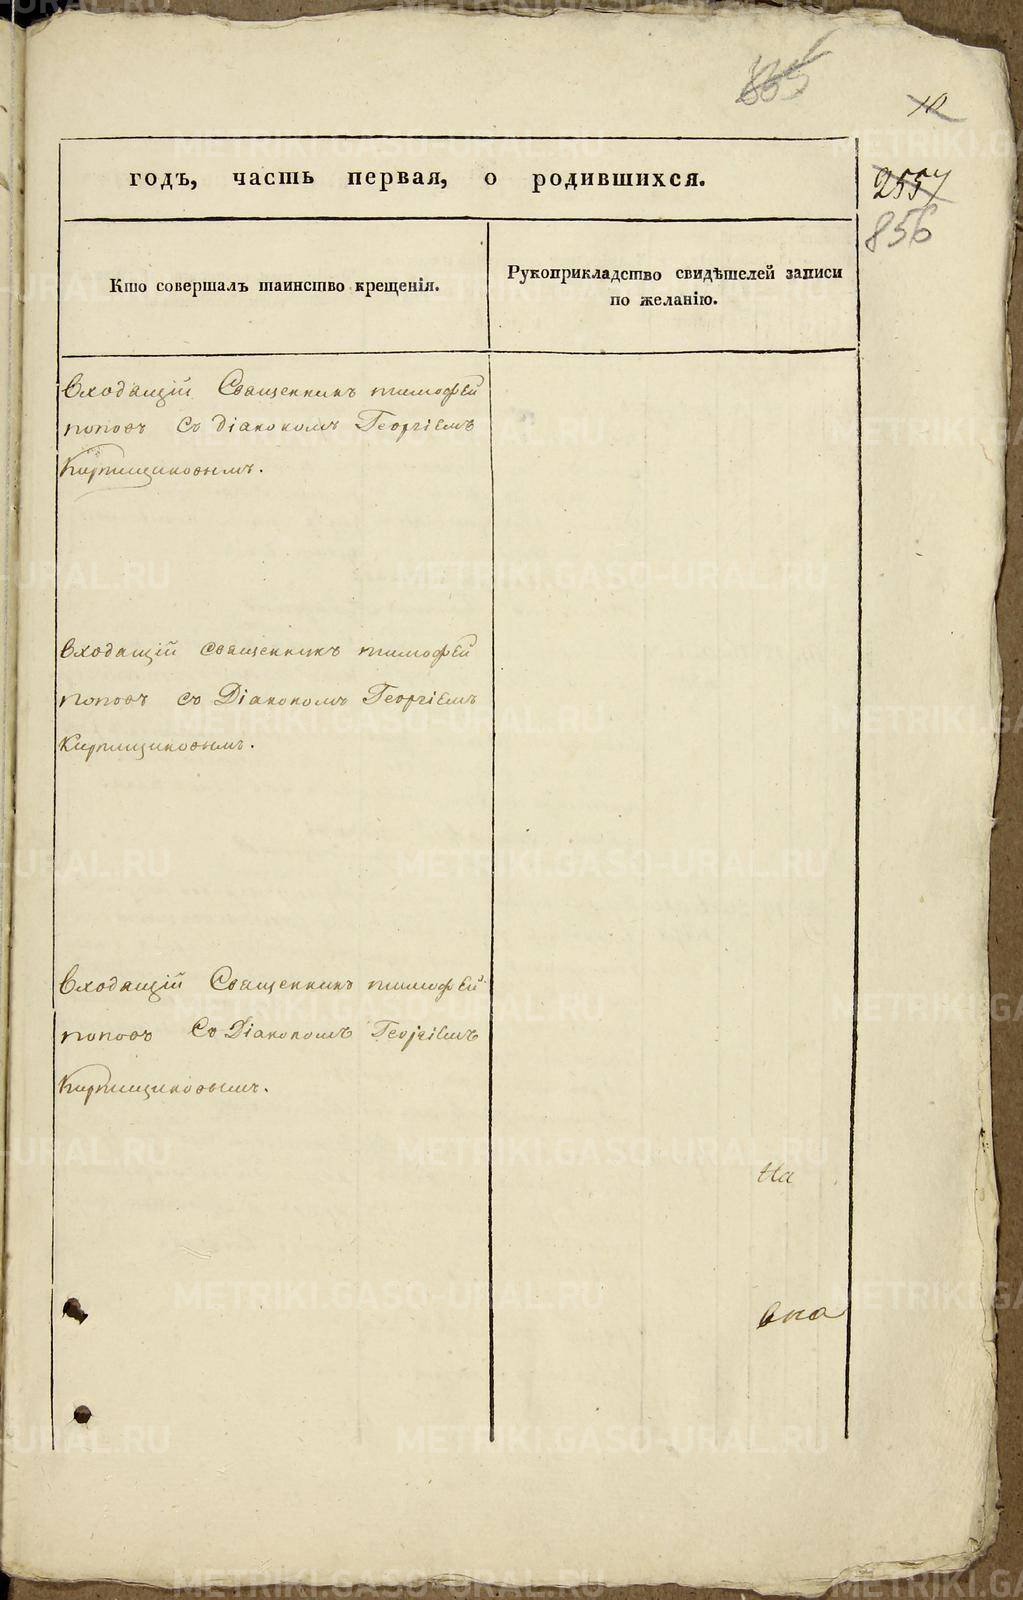 10
2557
856
годъ, часть первая, о родившихся.
Кто совершалъ таинство крещенія.
Рукоприкладство свидѣтелей записи
по желанію.
входящій Священникъ тимофей
поповъ съ діакономъ Георгіемъ
Кирпищиковымъ.
входящій священникъ тимофей
поповъ съ Діакономъ Георгіемъ
Кирпищиковымъ.
входящій Священникъ тимофей
поповъ Съ Діакономъ Георгіемъ
Кирпищиковымъ.
На
METRIKI.GASO-URAL.RU